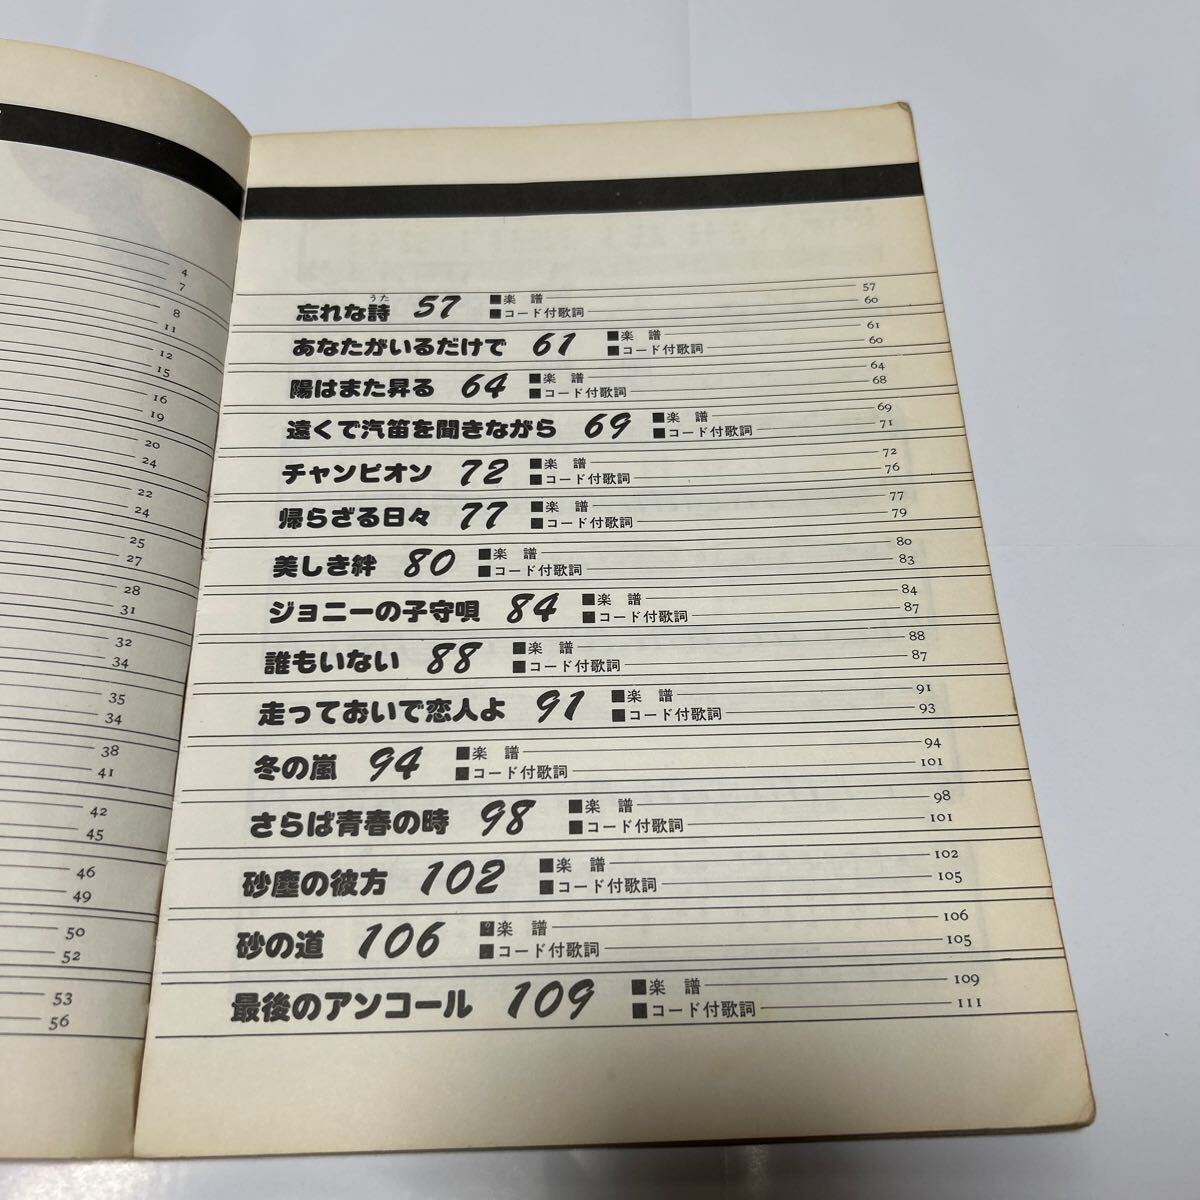 4
7
8
11
12
15
16
19
20
24
22
24
25
27
28
31
32
34
35
34
38
41
42
45
46
49
50
52
53
56
うた
忘れな詩 57 ■楽 譜 57
■コード付歌詞 60
あなたがいるだけで 61 ■楽 譜 61
■コード付歌詞 60
陽はまた昇る 64 ■楽 譜 64
■コード付歌詞 68
遠くで汽笛を聞きながら 69 ■楽 譜 69
■コード付歌詞 71
チャンピオン 72 ■楽 譜 72
■コード付歌詞 76
帰らざる日々 77 ■楽 譜 77
■コード付歌詞 79
美しき絆 80 ■楽 譜 80
■コード付歌詞 83
ジョニーの子守唄 84 ■楽 譜 84
■コード付歌詞 87
誰もいない 88 ■楽 譜 88
■コード付歌詞 87
走っておいで恋人よ 91 ■楽 譜 91
■コード付歌詞 93
冬の嵐 94 ■楽 譜 94
■コード付歌詞 101
さらば青春の時 98 ■楽 譜 98
■コード付歌詞 101
砂塵の彼方 102 ■楽 譜 102
■コード付歌詞 105
砂の道 106 ■楽 譜 106
■コード付歌詞 105
最後のアンコール 109 ■楽 譜 109
■コード付歌詞 111